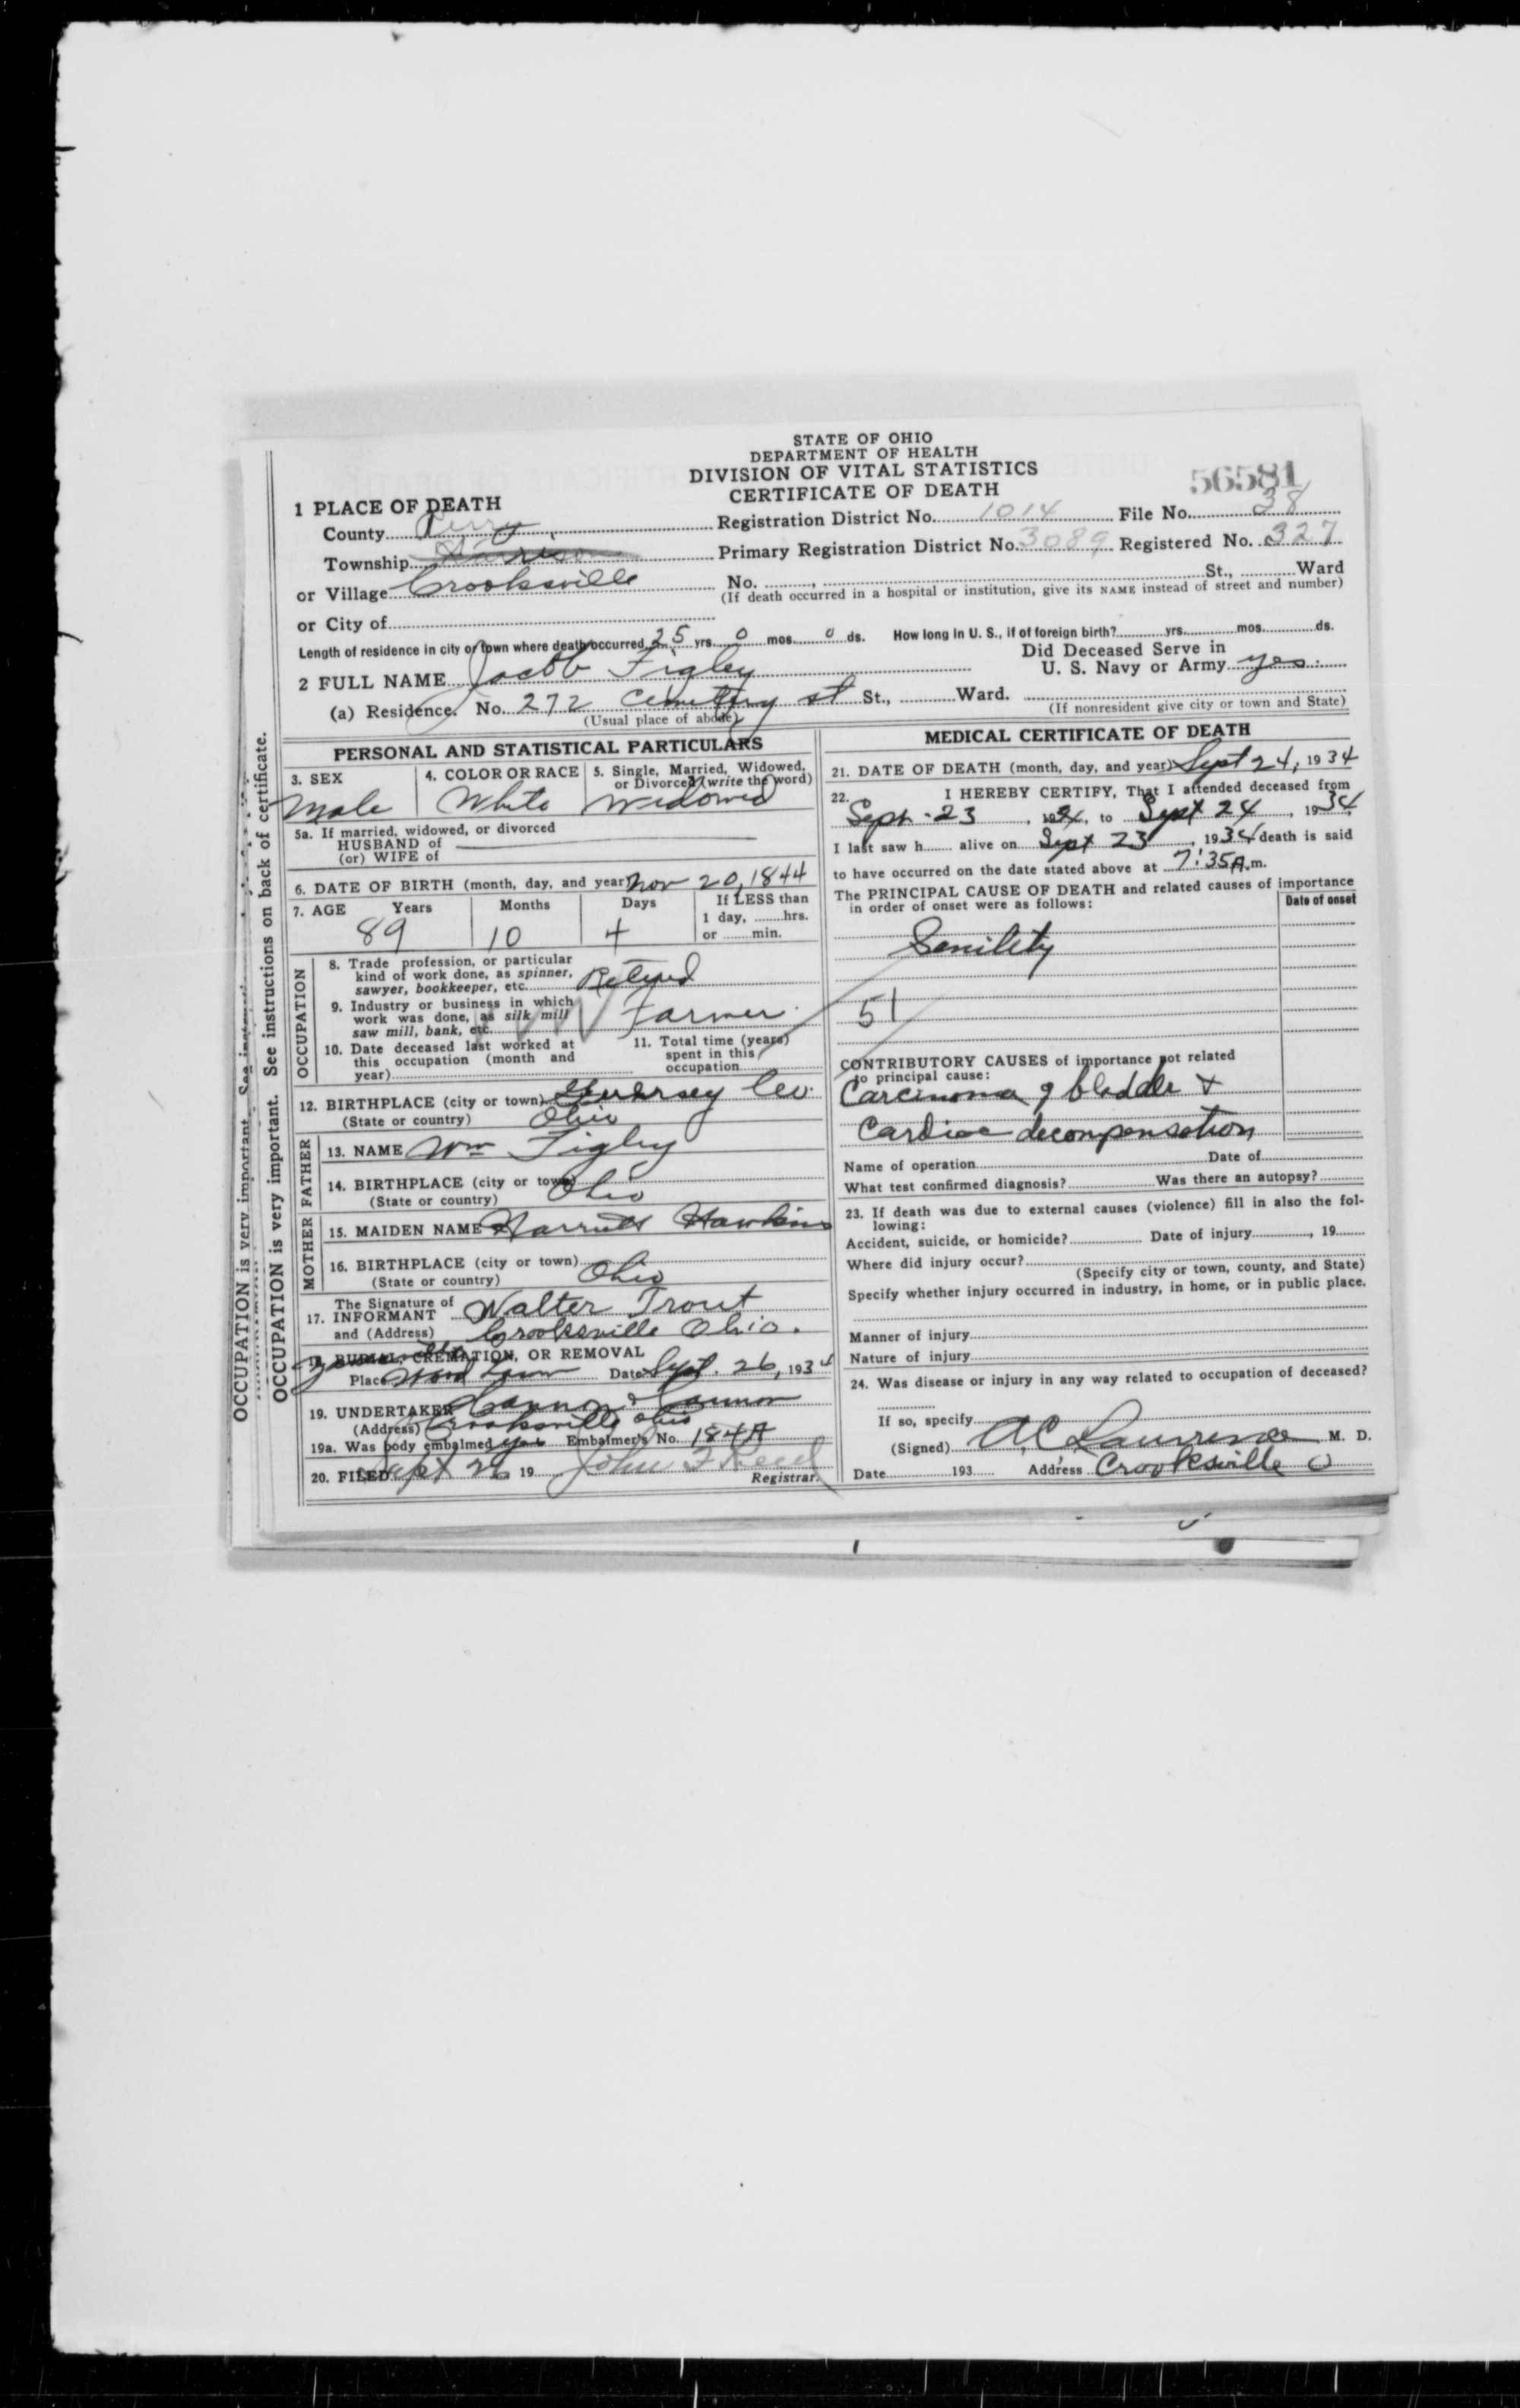 STATE OF OHIO
DEPARTMENT OF HEALTH
DIVISION OF VITAL STATISTICS
CERTIFICATE OF DEATH
56581
1 PLACE OF DEATH
County Perry Registration District No. 1014 File No. 38
Township Harrison Primary Registration District No. 3089 Registered No. 327
or Village Crooksville No. , St., Ward
(If death occurred in a hospital or institution, give its NAME instead of street and number)
or City of
Length of residence in city or town where death occurred 25 yrs. 0 mos. 0 ds. How long in U. S., if of foreign birth? yrs. mos. ds.
2 FULL NAME Jacob Figley Did Deceased Serve in U. S. Navy or Army yes.
(a) Residence. No. 272 Cemetery st St., Ward.
(Usual place of abode) (If nonresident give city or town and State)
PERSONAL AND STATISTICAL PARTICULARS
3. SEX 4. COLOR OR RACE 5. Single, Married, Widowed, or Divorced (write the word)
Male White Widowed
5a. If married, widowed, or divorced
HUSBAND of
(or) WIFE of
6. DATE OF BIRTH (month, day, and year) Nov 20, 1844
7. AGE Years Months Days If LESS than
1 day, hrs.
or min.
89 10 4
OCCUPATION
8. Trade profession, or particular
kind of work done, as spinner,
sawyer, bookkeeper, etc. Retired
9. Industry or business in which
work was done, as silk mill
saw mill, bank, etc. Farmer
10. Date deceased last worked at
this occupation (month and
year)
11. Total time (years)
spent in this
occupation
12. BIRTHPLACE (city or town) Guernsey Co.
(State or country) Ohio
FATHER
13. NAME Wm Figley
14. BIRTHPLACE (city or town)
(State or country) Ohio
MOTHER
15. MAIDEN NAME Harriett Hawkins
16. BIRTHPLACE (city or town)
(State or country) Ohio
17. The Signature of
INFORMANT Walter Trout
and (Address) Crooksville Ohio.
18. BURIAL, CREMATION, OR REMOVAL
Zanesville
Place Wood Lawn Date Sept. 26, 1934
19. UNDERTAKER Cannon & Cannon
(Address) Crooksville Ohio
19a. Was body embalmed yes Embalmer's No. 184A
20. FILED Sept 26 19 John F Reed
Registrar.
MEDICAL CERTIFICATE OF DEATH
21. DATE OF DEATH (month, day, and year) Sept 24, 1934
22. I HEREBY CERTIFY, That I attended deceased from
Sept. 23, 1934, to Sept 24, 1934
I last saw h alive on Sept 23, 1934 death is said
to have occurred on the date stated above at 7:35 A. m.
The PRINCIPAL CAUSE OF DEATH and related causes of importance
in order of onset were as follows: Date of onset
Senility
51
CONTRIBUTORY CAUSES of importance not related
to principal cause:
Carcinoma of bladder &
Cardiac decompensation
Name of operation Date of
What test confirmed diagnosis? Was there an autopsy?
23. If death was due to external causes (violence) fill in also the fol-
lowing:
Accident, suicide, or homicide? Date of injury , 19
Where did injury occur?
(Specify city or town, county, and State)
Specify whether injury occurred in industry, in home, or in public place.
Manner of injury
Nature of injury
24. Was disease or injury in any way related to occupation of deceased?
If so, specify
(Signed) A.C. Lawrence M. D.
Date 193 Address Crooksville O
OCCUPATION is very important. See instructions on back of certificate.
OCCUPATION is very important